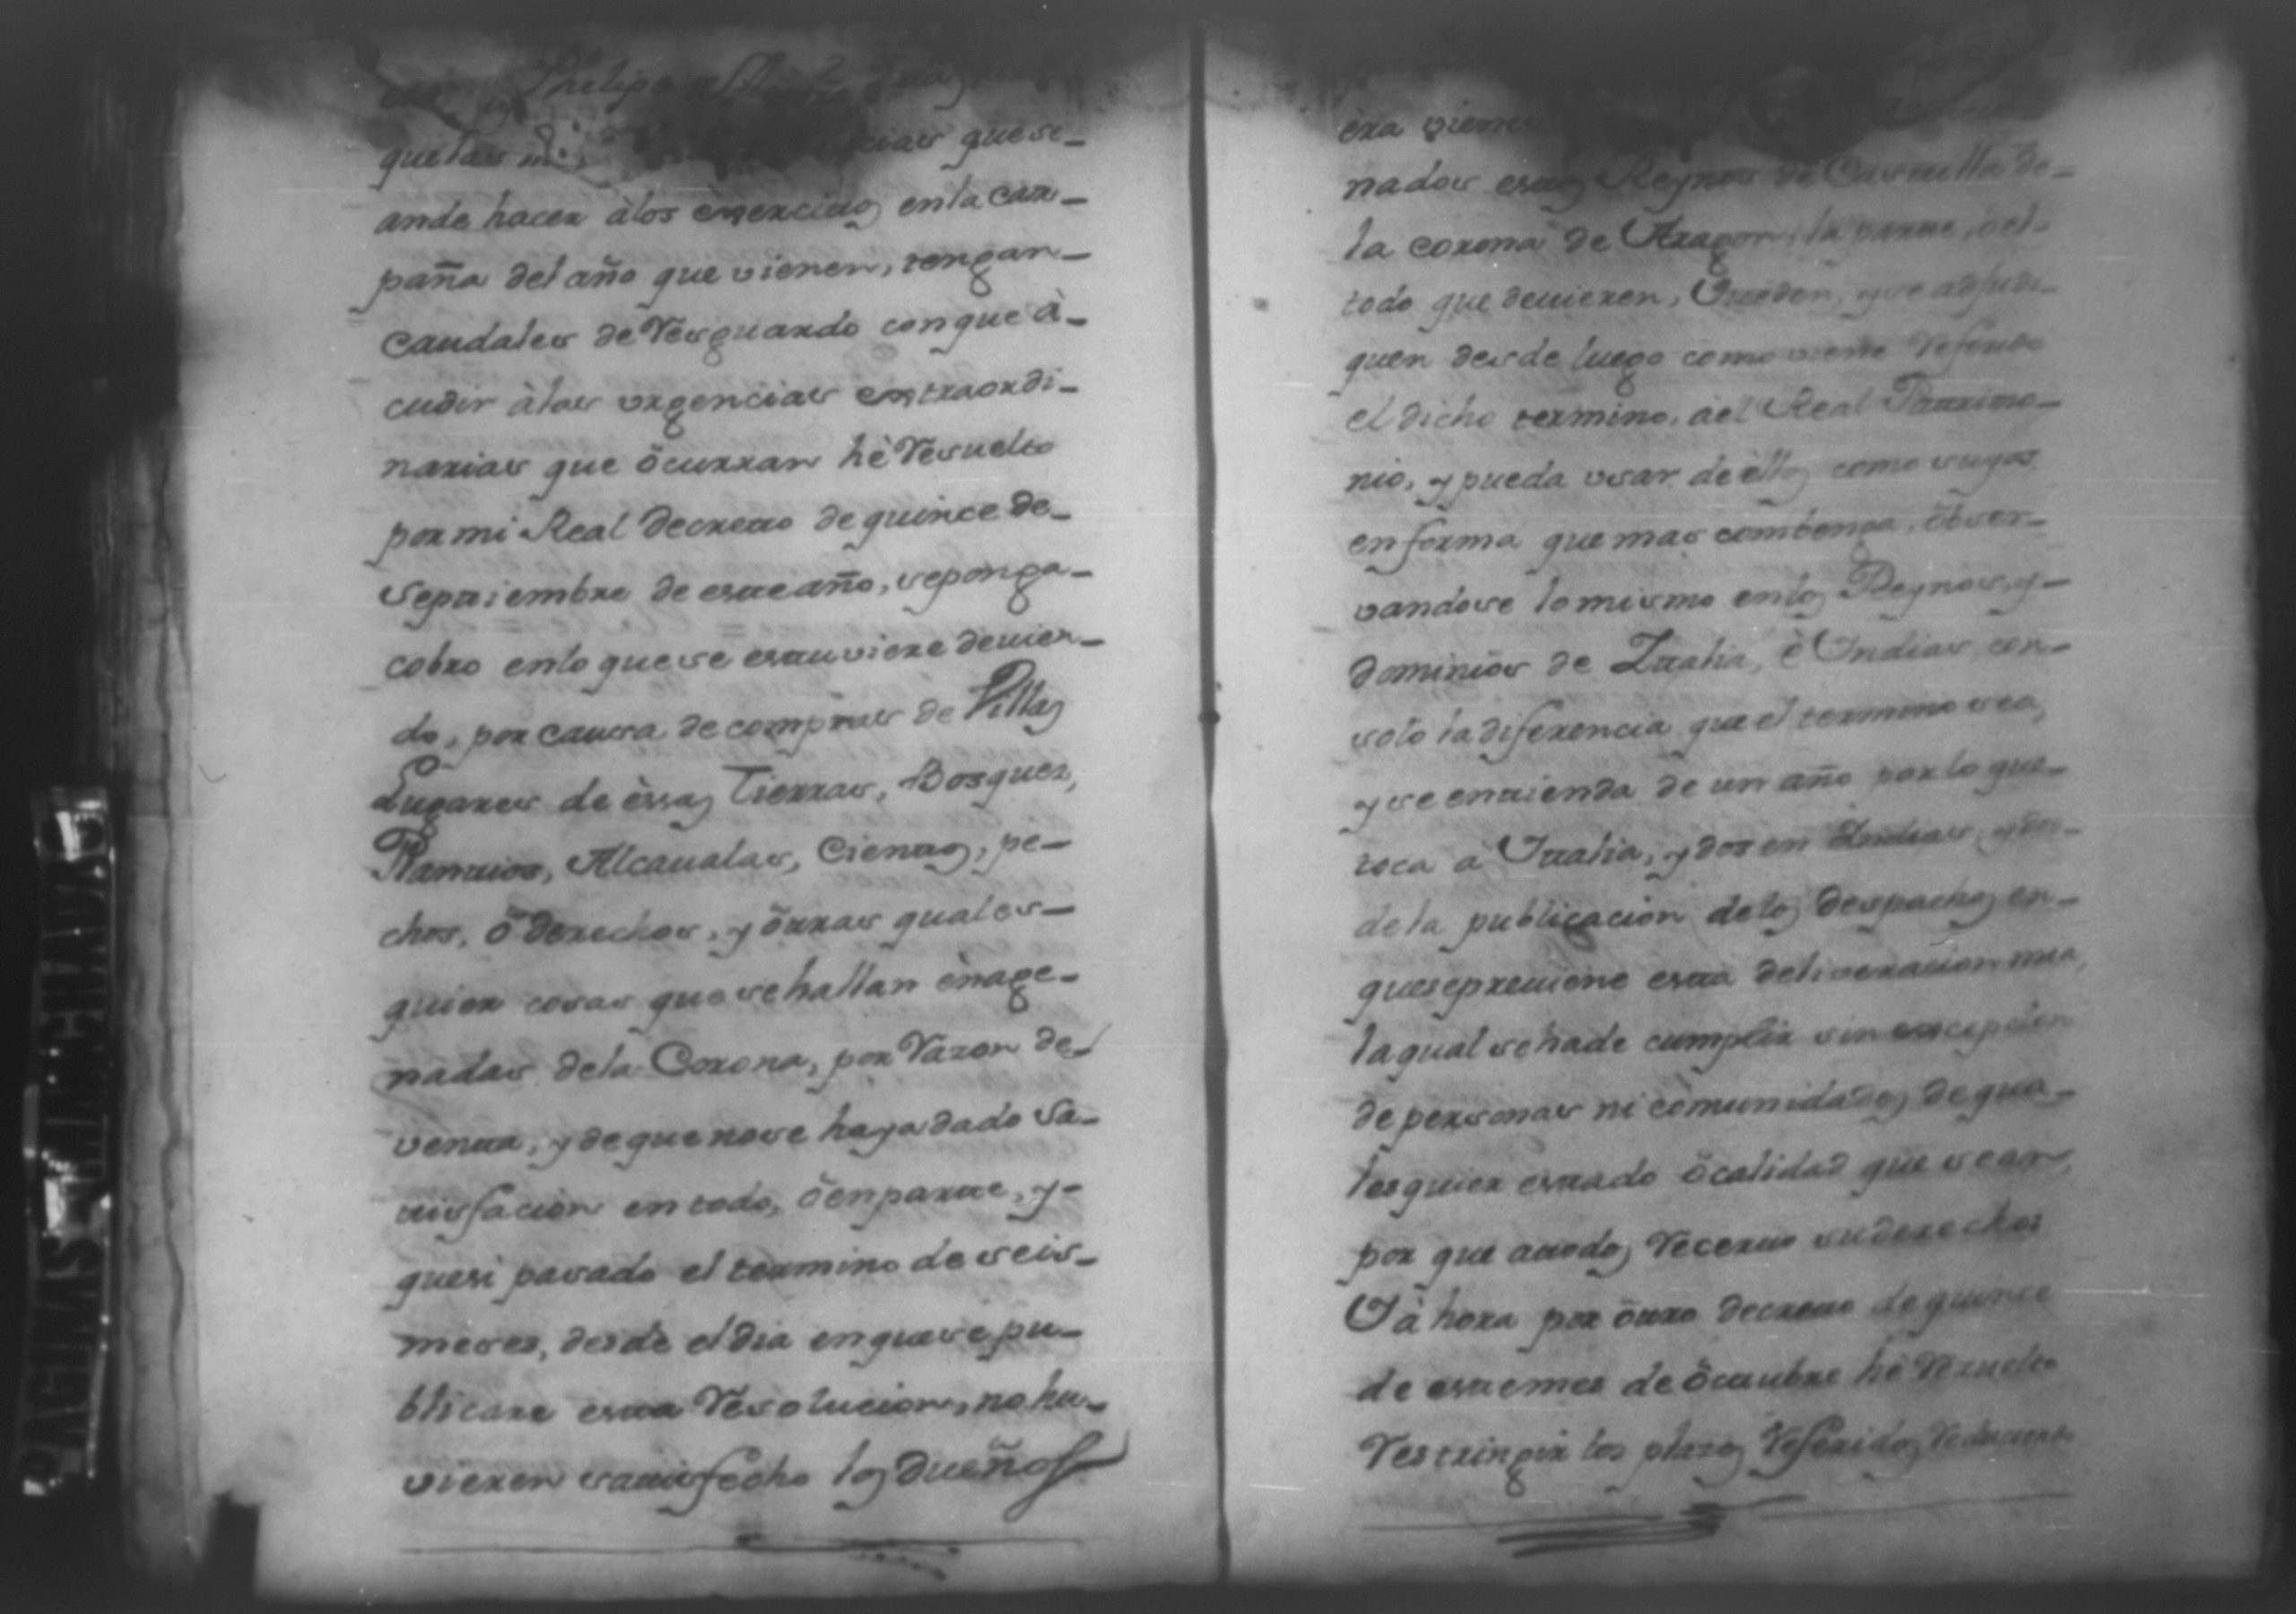 Phelipe
que las ciar que se-
ande hacer àlos exercitos enla cam-
paña del año que vienen, tengan-
Caudales de Resguardo con que à-
cudir àlas urgencias extraordi-
narias que ôcurran hè Resuelto
por mi Real Decreto de quince de-
Septiembre de este año, se ponga-
cobro enlo que se estuviere devien-
do, por causa de compras de Villas
Lugares de èsas Tierras, Bosques,
Plantios, Alcaualas, Cientos, pe-
chos, ô derechos, y ôtras quales-
quier cosas que se hallan ènage-
nadas dela Corona, por Razon de-
venta, y de que nose haya dado Sa-
tisfacion en todo, ô en parte, y-
quesi pasado el termino de seis-
meses, desde el dia en que se pu-
blicare esta Resolucion, no hu-
vieren satisfecho los dueños
era
nados estos Reynos de Castilla de-
la corona de Aragon, la parte, o el-
todo que deuieren, Queden, y se adjudi-
quen desde luego como viene Referido
el dicho termino, àel Real Patrimo-
nio, y pueda usar de èllos como suyos
en forma que mas combenga, ôbser-
vandose lo mismo enlos Reynos, y-
dominios de Ytalia, è Yndias, con-
solo la diferencia que el termino sea,
y se entienda de un año por lo que-
toca à Ytalia, y dos en Yndias, y des-
dela publicacion delos despachos en-
quesepreuiene esta deliveracion mia,
la qual se hade cumplir sin excepcion
de personas ni comunidades de qua-
lesquier estado ô calidad que sean,
por que atodos Receruo su derechos
Y à hora por ôtro Decreto de quince
de este mes de Octubre hè Rezuelto
Restringir los plazos Referidos